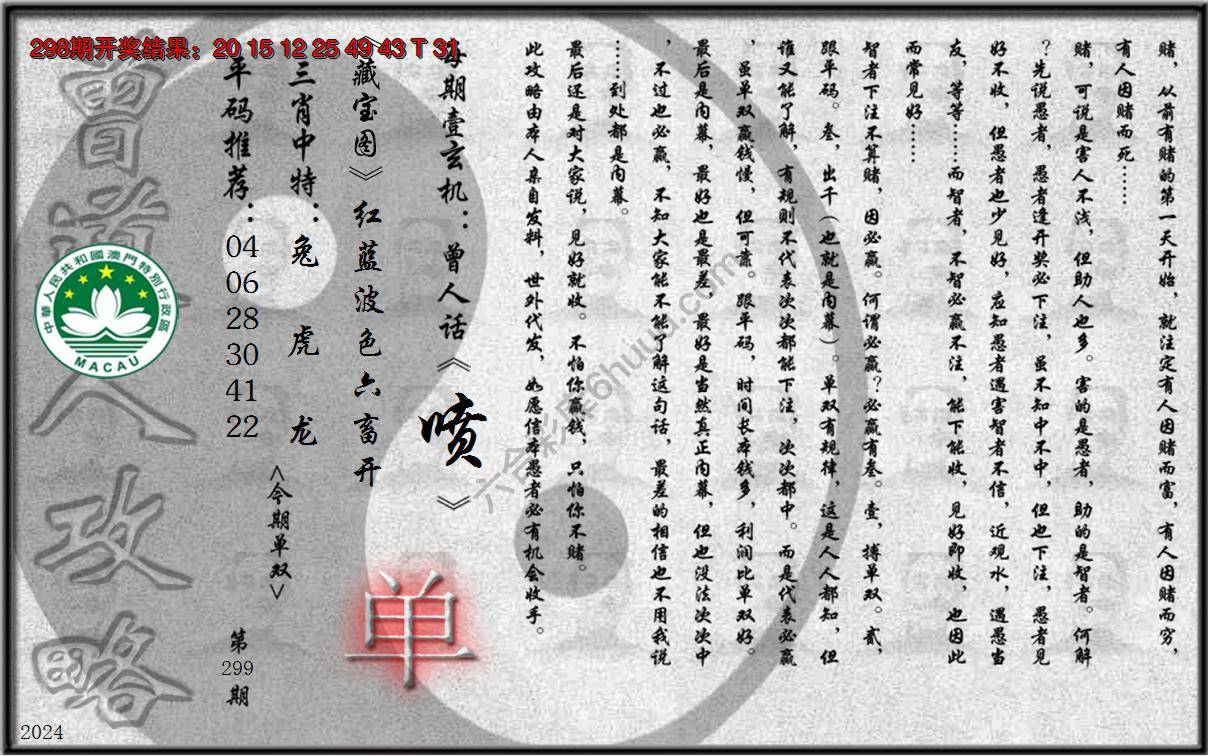 298期开奖结果：20 15 12 25 49 43 T 31
赌，从前有赌的第一天开始，就注定有人因赌而富，有人因赌而穷，
有人因赌而死……
赌，可说是害人不浅，但助人也多。害的是愚者，助的是智者。何解
？先说愚者，愚者逢开奖必下注，虽不知中不中，但也下注，愚者见
好不收，但愚者也少见好，应知愚者遇害智者不信，近观水，遇愚当
友，等等……而智者，不智必赢不注，能下能收，见好即收，也因此
而常见好……
智者下注不算赌，因必赢。何谓必赢？必赢有叁。壹，搏单双。贰，
跟平码。叁，出千（也就是内幕）。单双有规律，这是人人都知，但
谁又能了解，有规则不代表次次都能下注，次次都中。而是代表必赢
，虽单双赢钱慢，但可靠。跟平码，时间长本钱多，利润比单双好。
最后是内幕，最好也是最差，最好是当然真正内幕，但也没法次次中
，不过也必赢，不知大家能不能了解这句话，最差的相信也不用我说
……到处都是内幕。
最后还是对大家说，见好就收。不怕你赢钱，只怕你不赌。
此攻略由本人亲自发料，世外代发，如愿信本愚者必有机会收手。
每期壹玄机：曾人话《喷》
《藏宝图》红蓝波色六畜开
单
三肖中特：兔虎龙
<今期单双>
平码推荐：04 06 28 30 41 22
第299期
曾道人攻略
中華人民共和國澳門特別行政區
MACAU
六合彩库6huuu.com
2024